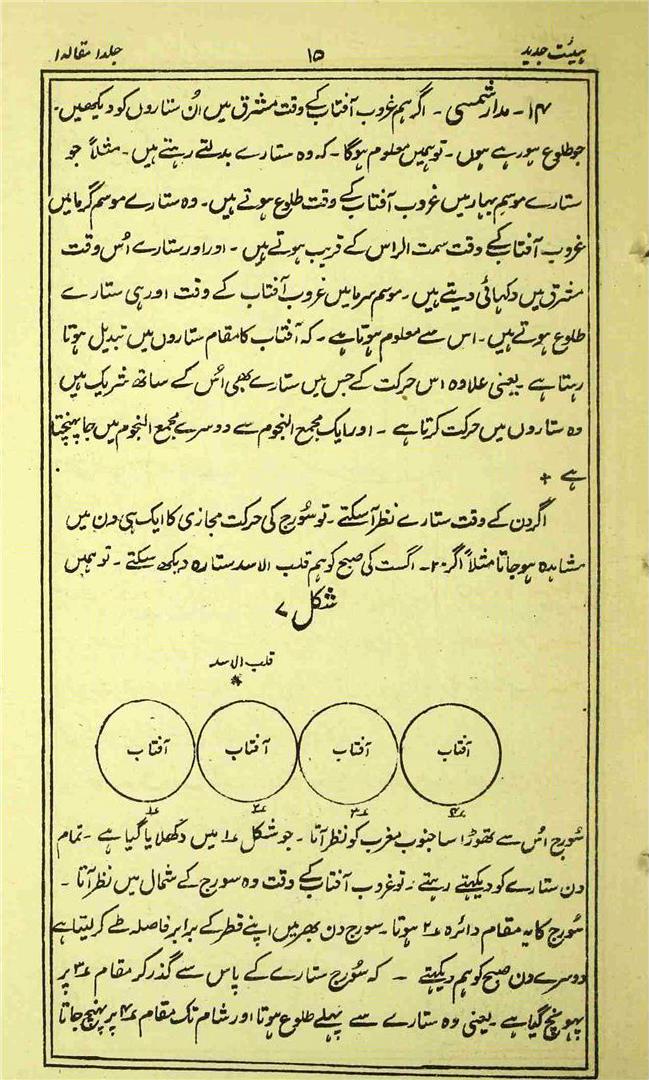 ہیئت جدید ۱۵ جلد ۱ مقالہ ۱
۱۴۔ مدار شمسی ۔ اگر ہم غروب آفتاب کے وقت مشرق میں اُن ستاروں کو دیکھیں۔
جو طلوع ہو رہے ہوں ۔ تو ہمیں معلوم ہوگا ۔ کہ وہ ستارے بدلتے رہتے ہیں ۔ مثلاً جو
ستارے موسم بہار میں غروب آفتاب کے وقت طلوع ہوتے ہیں۔ وہ ستارے موسم گرما میں
غروب آفتاب کے وقت سمت الراس کے قریب ہوتے ہیں ۔ اور اور ستارے اُس وقت
مشرق میں دکہائی دیتے ہیں ۔ موسم سرما میں غروب آفتاب کے وقت اور ہی ستارے
طلوع ہوتے ہیں ۔ اس سے معلوم ہوتا ہے ۔ کہ آفتاب کا مقام ستاروں میں تبدیل ہوتا
رہتا ہے ۔ یعنی علاوہ اس حرکت کے جس میں ستارے بھی اُس کے ساتھ شریک ہیں
وہ ستاروں میں حرکت کرتا ہے ۔ اور ایک مجمع النجوم سے دوسرے مجمع النجوم میں جا پہنچتا
ہے +
اگر دن کے وقت ستارے نظر آ سکتے ۔ تو سُورج کی حرکت مجازی کا ایک ہی دن میں
مشاہدہ ہو جاتا مثلاً اگر ۲۰۔ اگست کی صبح کو ہم قلب الاسد ستارہ دیکھ سکتے ۔ تو ہمیں
شکل ۷
قلب الاسد
*
آفتاب آفتاب آفتاب آفتاب
۱؁ ۲؁ ۳؁ ۴؁
سُورج اُس سے تھوڑا سا جنوب مغرب کو نظر آتا ۔ جو شکل ۱؁ میں دکھلایا گیا ہے ۔ تمام
دن ستارے کو دیکہتے رہتے ۔ تو غروب آفتاب کے وقت وہ سورج کے شمال میں نظر آتا ۔
سُورج کا یہ مقام دائرہ ۲؁ ہوتا ۔ سورج دن بھر میں اپنے قطر کے برابر فاصلہ طے کر لیتا ہے
دوسرے دن صبح کو ہم دیکہتے ۔ کہ سُورج ستارے کے پاس سے گذر کر مقام ۳؁ پر
پہونچ گیا ہے ۔ یعنی وہ ستارے سے پہلے طلوع ہوتا اور شام تک مقام ۴؁ پر پہنچ جاتا